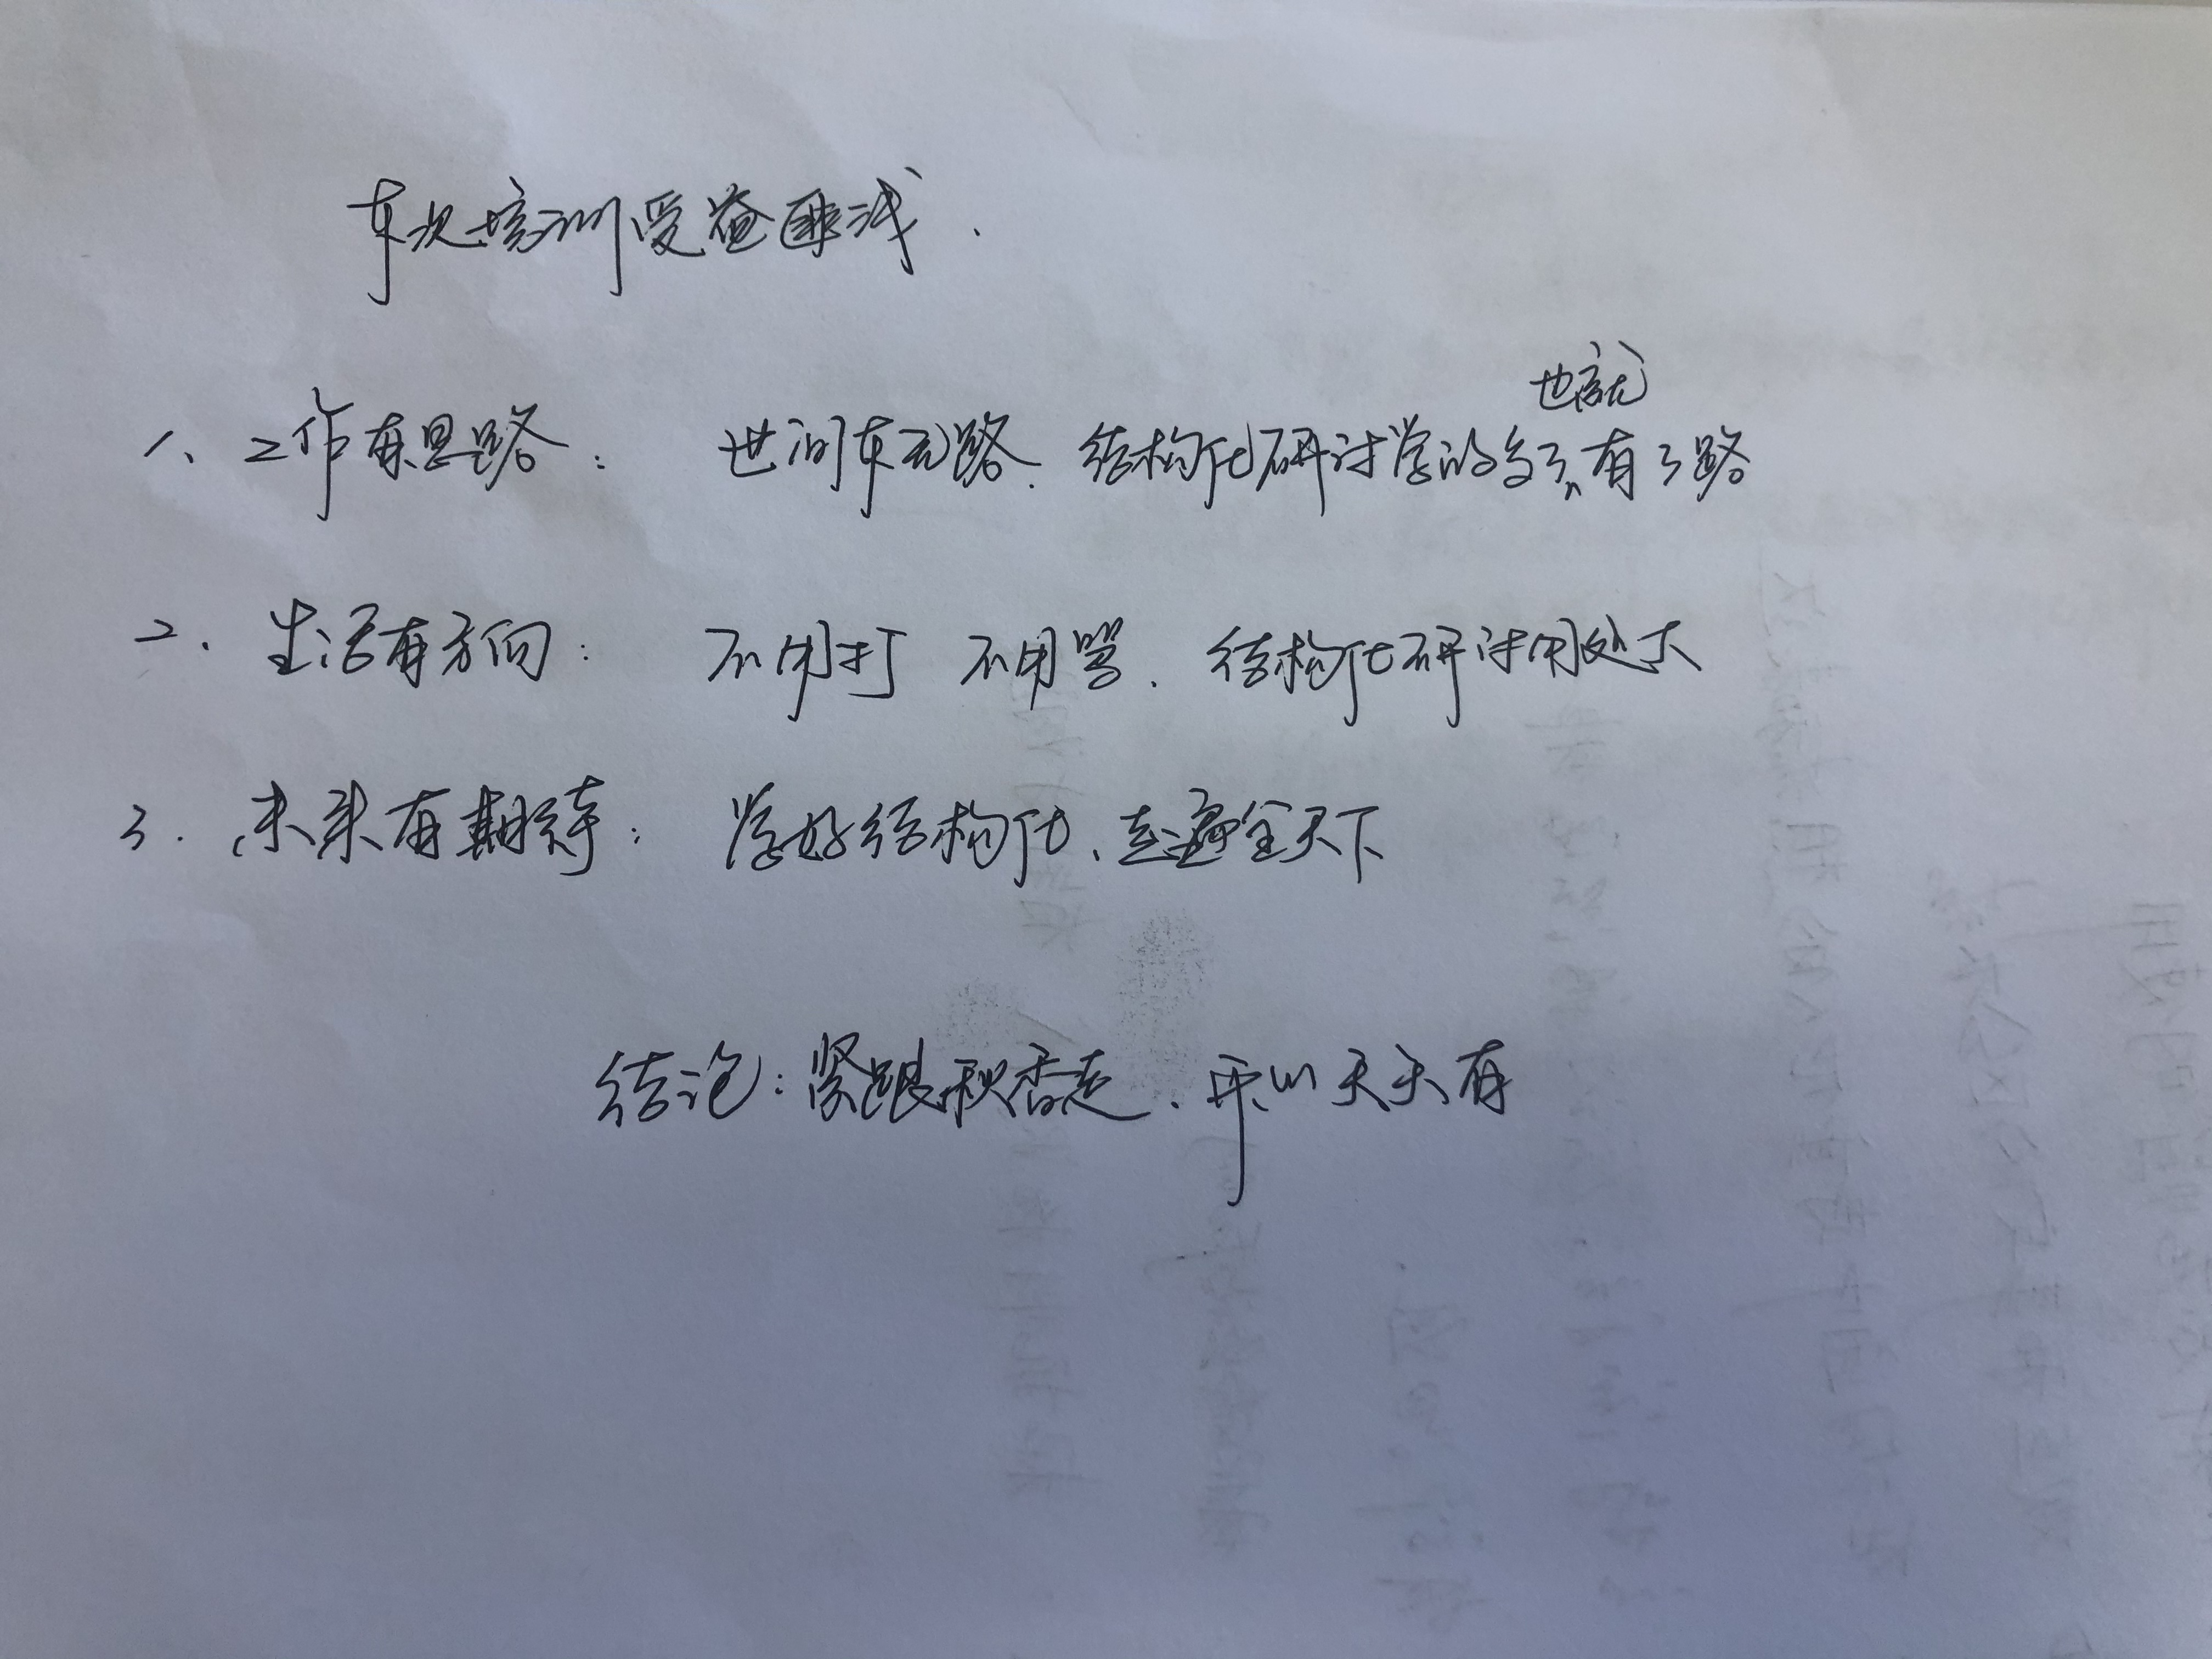 本次培训受益匪浅.
1、工作有思路: 世间本无路. 结构化研讨学的多了, 也就有了路
2. 生活有方向: 不用打 不用骂. 结构化研讨用处大
3. 未来有期待: 学好结构化、走遍全天下
结论: 紧跟秋香走. 开心天天有